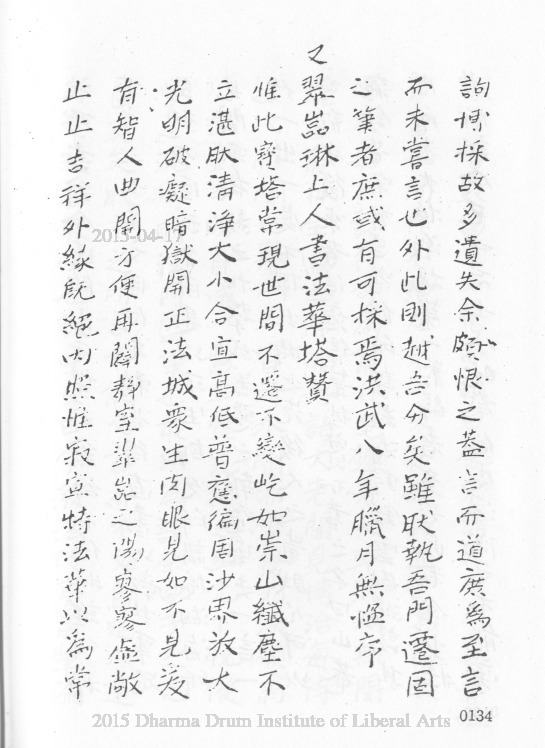 詢博採故多遺失余頗恨之蓋言而道庶為至言
而未嘗言也外此則越吾分矣雖肰執吾門遷固
之筆者庶或有可採焉洪武八年臘月無慍序
又
翠嵓琳上人書法華塔贊
惟此寶塔常現世間不遷不變屹如崇山纖塵不
立湛肰清淨大小合宜高低普應徧周沙界放大
光明破癡暗獄開正法城衆生肉眼見如不見爰
有智人曲開方便再闢靜室翠嵓之陽寥寥虛敞
止止吉祥外緣旣絕內照惟寂宴特法華以為常
2013-04-17
2015 Dharma Drum Institute of Liberal Arts
0134